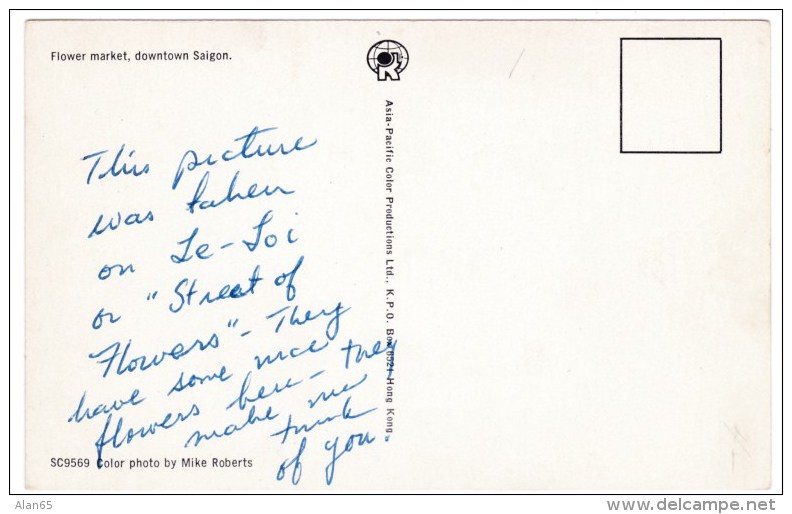 Flower market, downtown Saigon.
This picture
was taken
on Le-Loi
or "Street of
Flowers" - They
have some nice
flowers here - they
make me
think
of you.
Asia-Pacific Color Productions Ltd., K.P.O. Box 6521 Hong Kong.
SC9569 Color photo by Mike Roberts
Alan65
www.delcampe.net